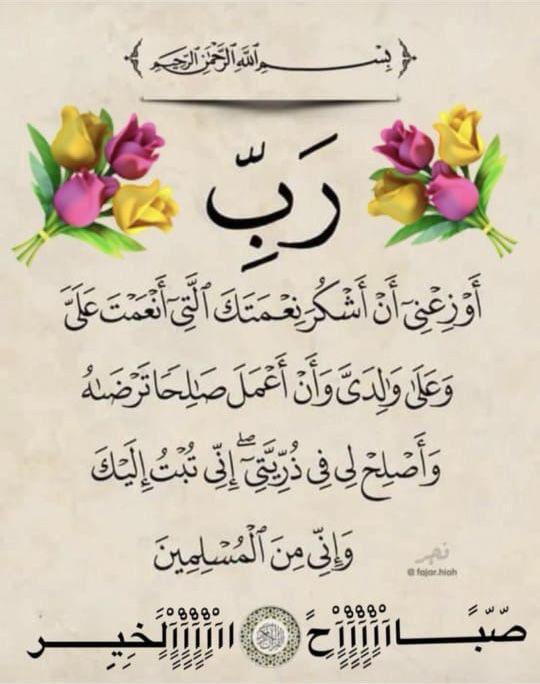 بِسْمِ اللَّهِ الرَّحْمَٰنِ الرَّحِيمِ
رَبِّ
أَوْزِعْنِىٓ أَنْ أَشْكُرَ نِعْمَتَكَ ٱلَّتِىٓ أَنْعَمْتَ عَلَىَّ
وَعَلَىٰ وَٰلِدَىَّ وَأَنْ أَعْمَلَ صَٰلِحًا تَرْضَىٰهُ
وَأَصْلِحْ لِى فِى ذُرِّيَّتِىٓ ۖ إِنِّى تُبْتُ إِلَيْكَ
وَإِنِّى مِنَ ٱلْمُسْلِمِينَ
فجر
@ fajar.hiah